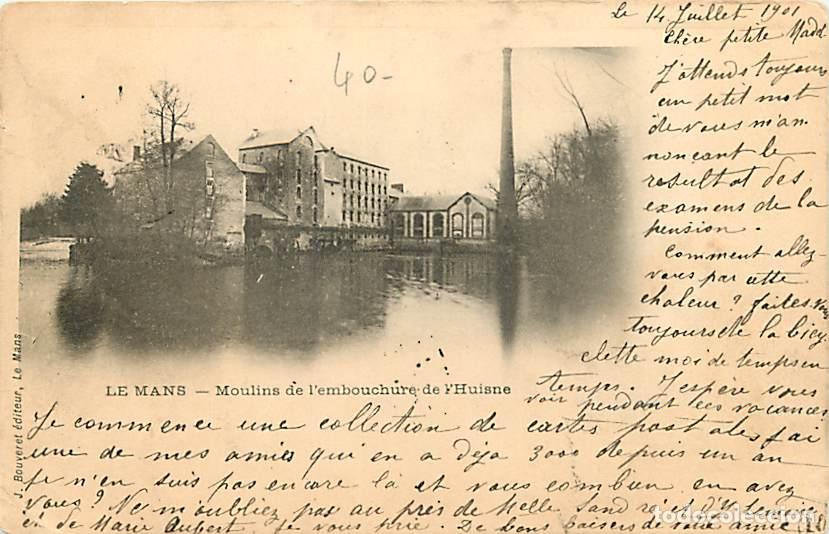 Le 14 Juillet 1901
Chère petite Madd
J'attends toujours
un petit mot
de vous m'an
nonçant le
resultat des
examens de la
pension.
Comment allez-
vous par cette
chaleur? faites vous
toujours de la bicy
clette moi de temps en
temps. J'espère vous
voir pendant ces vacances
40-
LE MANS — Moulins de l'embouchure de l'Huisne
J. Bouveret éditeur, Le Mans
Je commence une collection de cartes postales j'ai
une de mes amies qui en a déjà 3000 depuis un an
Je n'en suis pas encore là et vous combien en avez
vous? Ne m'oubliez pas au près de Melle
et de Marie Aubert je vous prie. De bons baisers de votre amie
todocoleccion